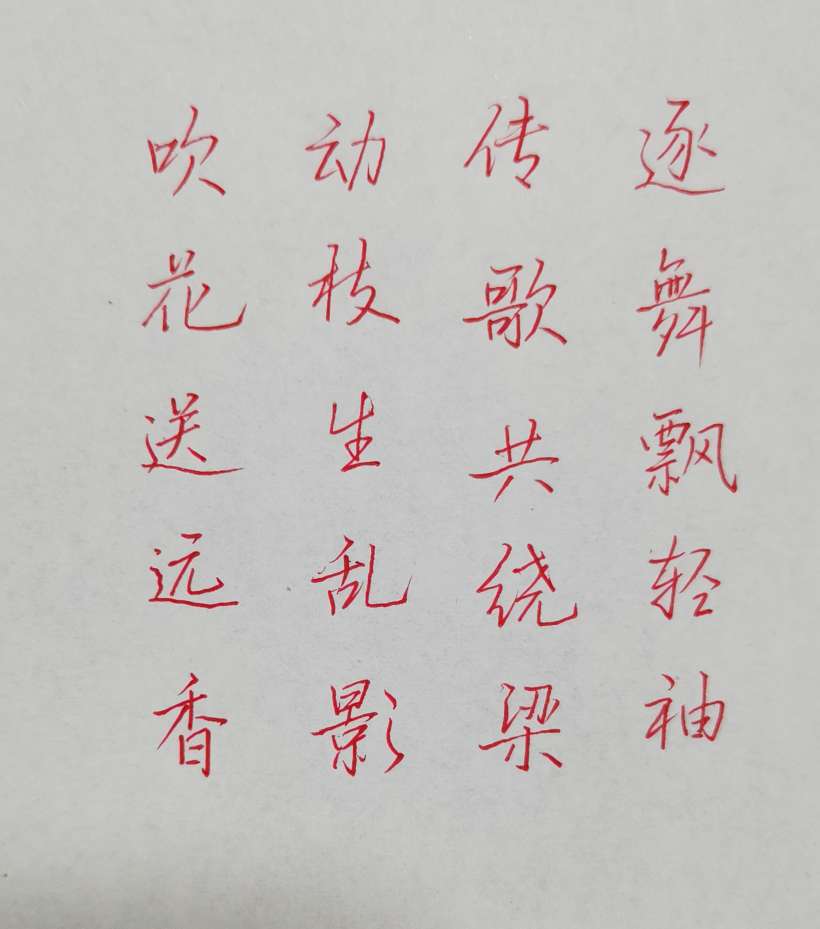 逐舞飘轻袖
传歌共绕梁
动枝生乱影
吹花送远香